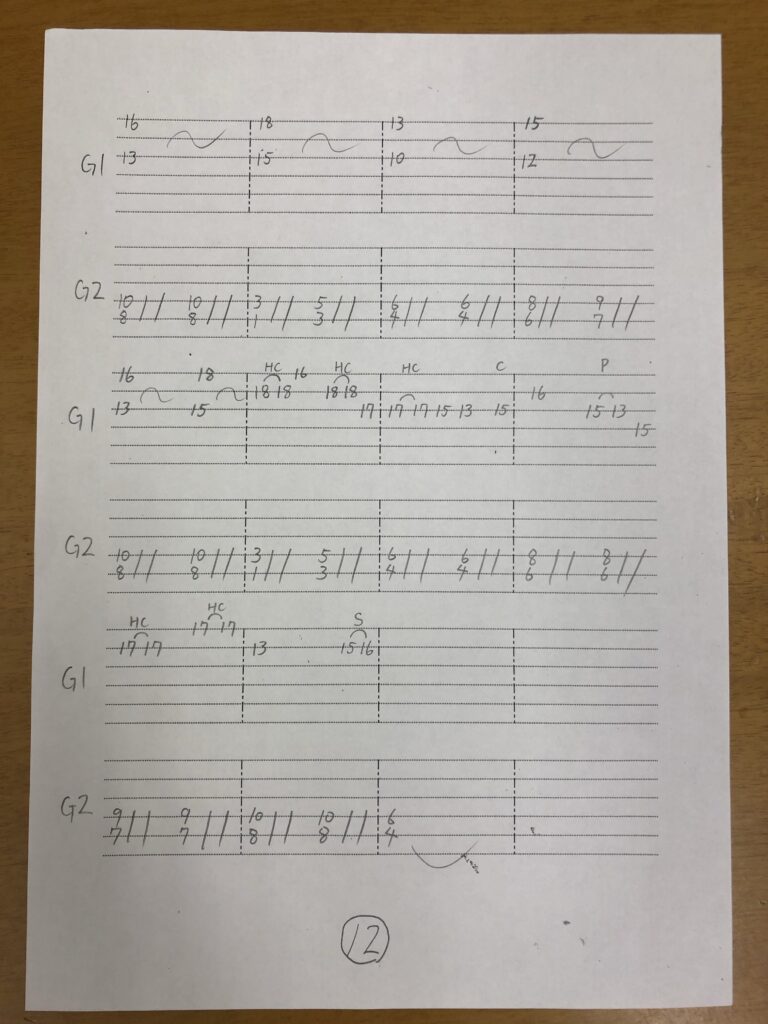 16 18 13 15
G1 13 15 10 12
G2 10 10 3 5 6 6 8 9
8 8 1 3 4 4 6 7
HC HC HC C P
16 18 16
18 18 18 18 16
G1 13 15 17 17 17 15 13 15 15 13
15
G2 10 10 3 5 6 6 8 8
8 8 1 3 4 4 6 6
HC HC S
17 17
17 17 13 15 16
G1
G2 9 9 10 10 6
7 7 8 8 4
12